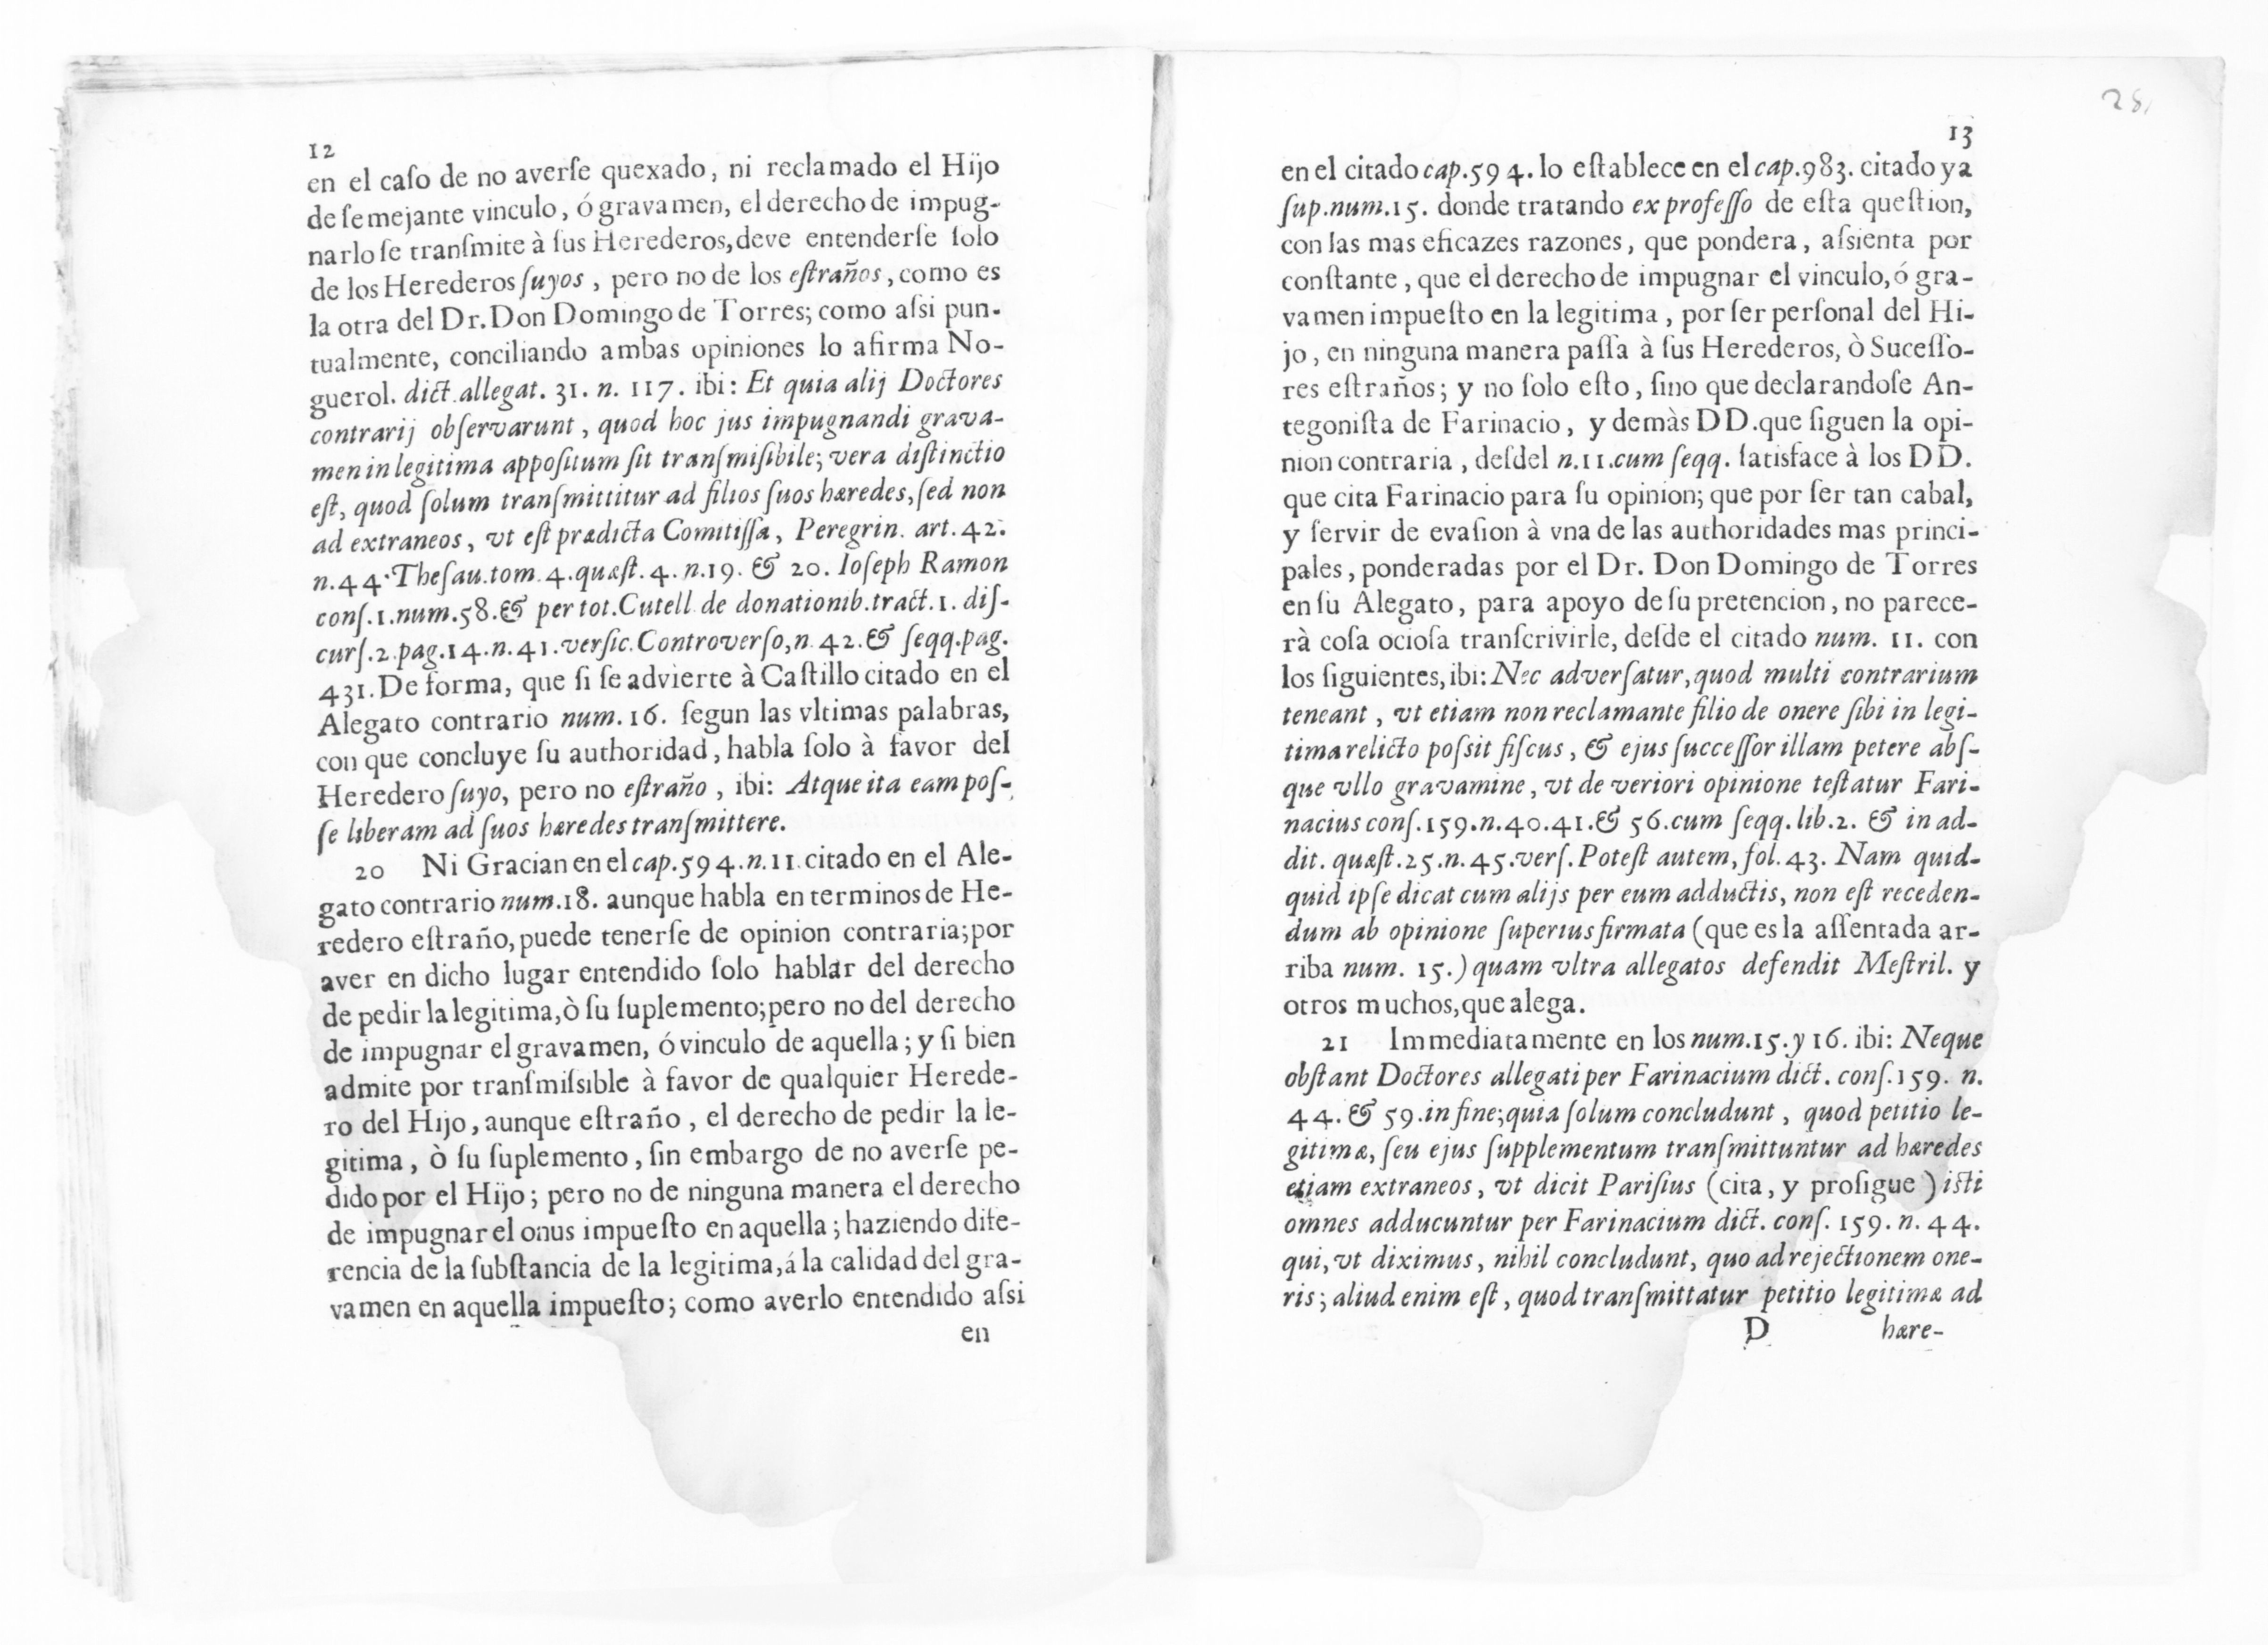 12
en el caſo de no averſe quexado, ni reclamado el Hijo
de ſemejante vinculo, ó gravamen, el derecho de impug-
narlo ſe tranſmite à ſus Herederos, deve entenderſe ſolo
de los Herederos ſuyos, pero no de los eſtraños, como es
la otra del Dr. Don Domingo de Torres; como aſsi pun-
tualmente, conciliando ambas opiniones lo afirma No-
guerol. dict. allegat. 31. n. 117. ibi: Et quia alij Doctores
contrarij obſervarunt, quod hoc jus impugnandi grava-
men in legitima appoſitum ſit tranſmiſibile; vera diſtinctio
eſt, quod ſolum tranſmittitur ad filios ſuos hæredes, ſed non
ad extraneos, vt eſt prædicta Comitiſſa, Peregrin. art. 42.
n. 44. Theſau. tom. 4. quæſt. 4. n. 19. & 20. Ioſeph Ramon
conſ. 1. num. 58. & per tot. Cutell. de donationib. tract. 1. diſ-
curſ. 2. pag. 14. n. 41. verſic. Controverſo, n. 42. & ſeqq. pag.
431. De forma, que ſi ſe advierte à Caſtillo citado en el
Alegato contrario num. 16. ſegun las vltimas palabras,
con que concluye ſu authoridad, habla ſolo à favor del
Heredero ſuyo, pero no eſtraño, ibi: Atque ita eam poſ-
ſe liberam ad ſuos hæredes tranſmittere.
20 Ni Gracian en el cap. 594. n. 11. citado en el Ale-
gato contrario num. 18. aunque habla en terminos de He-
redero eſtraño, puede tenerſe de opinion contraria; por
aver en dicho lugar entendido ſolo hablar del derecho
de pedir la legitima, ò ſu ſuplemento; pero no del derecho
de impugnar el gravamen, ó vinculo de aquella; y ſi bien
admite por tranſmiſsible à favor de qualquier Herede-
ro del Hijo, aunque eſtraño, el derecho de pedir la le-
gitima, ò ſu ſuplemento, ſin embargo de no averſe pe-
dido por el Hijo; pero no de ninguna manera el derecho
de impugnar el onus impueſto en aquella; haziendo dife-
rencia de la ſubſtancia de la legitima, á la calidad del gra-
vamen en aquella impueſto; como averlo entendido aſsi
en
28
13
en el citado cap. 594. lo eſtablece en el cap. 983. citado ya
ſup. num. 15. donde tratando ex profeſſo de eſta queſtion,
con las mas eficazes razones, que pondera, aſsienta por
conſtante, que el derecho de impugnar el vinculo, ó gra-
vamen impueſto en la legitima, por ſer perſonal del Hi-
jo, en ninguna manera paſſa à ſus Herederos, ò Suceſſo-
res eſtraños; y no ſolo eſto, ſino que declarandoſe An-
tegoniſta de Farinacio, y demàs DD. que ſiguen la opi-
nion contraria, deſdel n. 11. cum ſeqq. ſatisface à los DD.
que cita Farinacio para ſu opinion; que por ſer tan cabal,
y ſervir de evaſion à vna de las authoridades mas princi-
pales, ponderadas por el Dr. Don Domingo de Torres
en ſu Alegato, para apoyo de ſu pretencion, no parece-
rà coſa ocioſa tranſcrivirle, deſde el citado num. 11. con
los ſiguientes, ibi: Nec adverſatur, quod multi contrarium
teneant, vt etiam non reclamante filio de onere ſibi in legi-
tima relicto poſsit fiſcus, & ejus ſucceſſor illam petere abſ-
que vllo gravamine, vt de veriori opinione teſtatur Fari-
nacius conſ. 159. n. 40. 41. & 56. cum ſeqq. lib. 2. & in ad-
dit. quæſt. 25. n. 45. verſ. Poteſt autem, fol. 43. Nam quid-
quid ipſe dicat cum alijs per eum adductis, non eſt receden-
dum ab opinione ſuperius firmata (que es la aſſentada ar-
riba num. 15.) quam vltra allegatos defendit Meſtril. y
otros muchos, que alega.
21 Immediatamente en los num. 15. y 16. ibi: Neque
obſtant Doctores allegati per Farinacium dict. conſ. 159. n.
44. & 59. in fine; quia ſolum concludunt, quod petitio le-
gitimæ, ſeu ejus ſupplementum tranſmittuntur ad hæredes
etiam extraneos, vt dicit Pariſius (cita, y proſigue) iſti
omnes adducuntur per Farinacium dict. conſ. 159. n. 44.
qui, vt diximus, nihil concludunt, quo ad rejectionem one-
ris; aliud enim eſt, quod tranſmittatur petitio legitimæ ad
D hære-